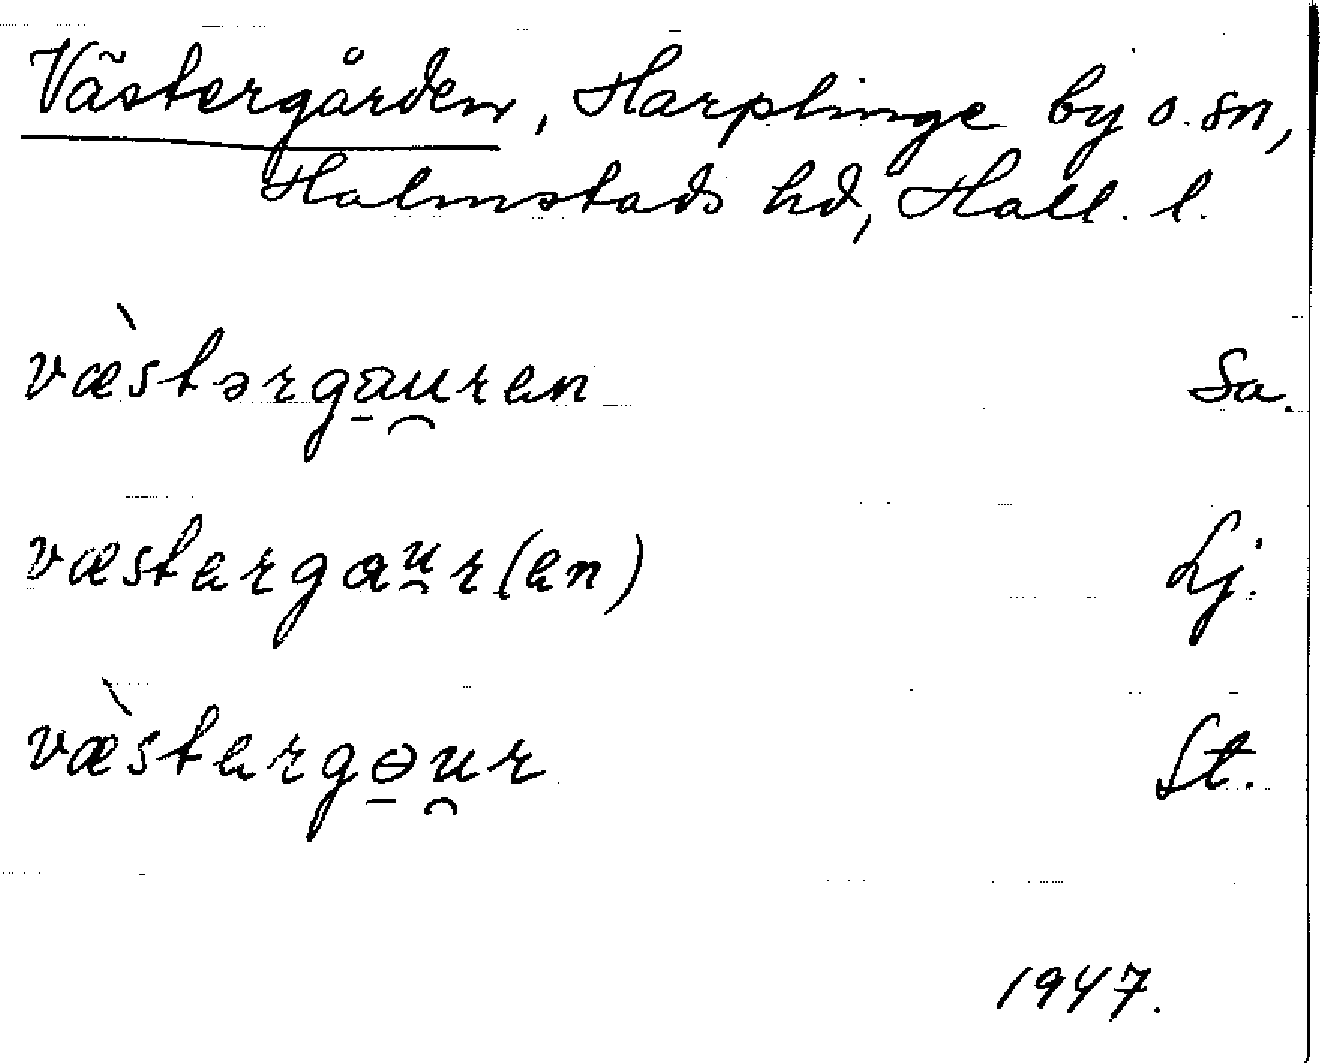 Västergården, Harplinge by o. sn,
Halmstads hd, Hall. l.
væ̀stərga̱u̯ren Sa.
væstergau̯r(en) Lj.
væ̀stergɵ̱u̯r St.
1947.